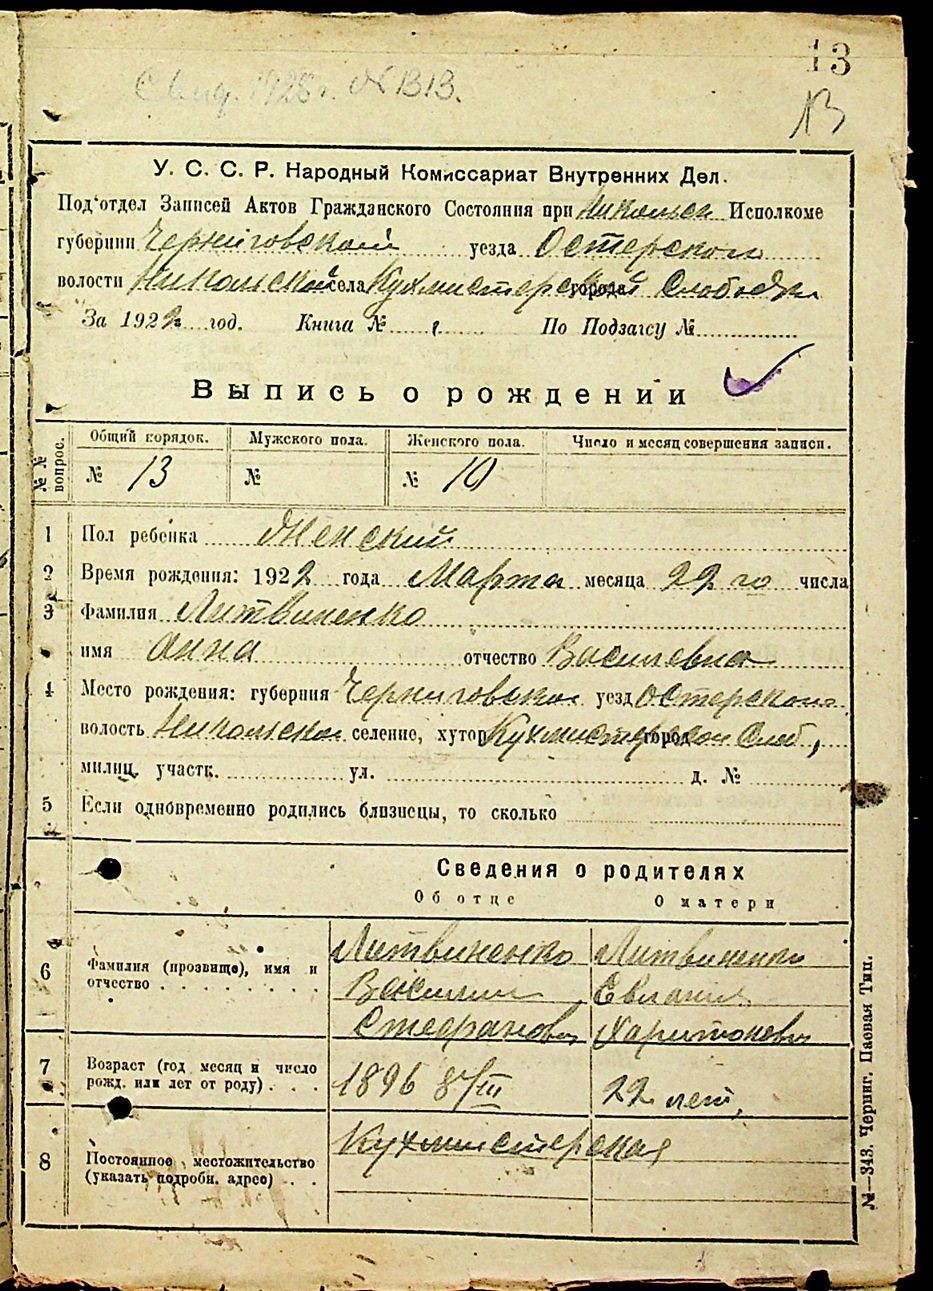 13
Свид. 1928 г. № 1313.
13
У. С. С. Р. Народный Комиссариат Внутренних Дел.
Под'отдел Записей Актов Гражданского Состояния при Никольск Исполкоме
губернии Черниговской уезда Остерского
волости Никольской села Кухмистерской города Слободки
За 1922 год. Книга № По Подзагсу №
Выпись о рождении
№ № вопрос. Общий порядок. Мужского пола. Женского пола. Число и месяц совершения записи.
№ 13 № № 10
1 Пол ребенка Женский
2 Время рождения: 1922 года Марта месяца 22 го числа
3 Фамилия Литвиненко
имя Анна отчество Василевна
4 Место рождения: губерния Черниговской уезд Остерского
волость Никольской селение, хутор Кухмистерской город Слоб,
милиц. участк. ул. д. №
5 Если одновременно родились близнецы, то сколько
Сведения о родителях
Об отце О матери
6 Фамилия (прозвище), имя и отчество
Литвиненко Литвиненко
Василий
Стефанович Харитоновна
7 Возраст (год месяц и число рожд. или лет от роду)
1896 8/III 22 лет,
8 Постоянное местожительство (указать подробн. адрес)
Кухмистерская
№—343. Черниг. Паевая Тип.